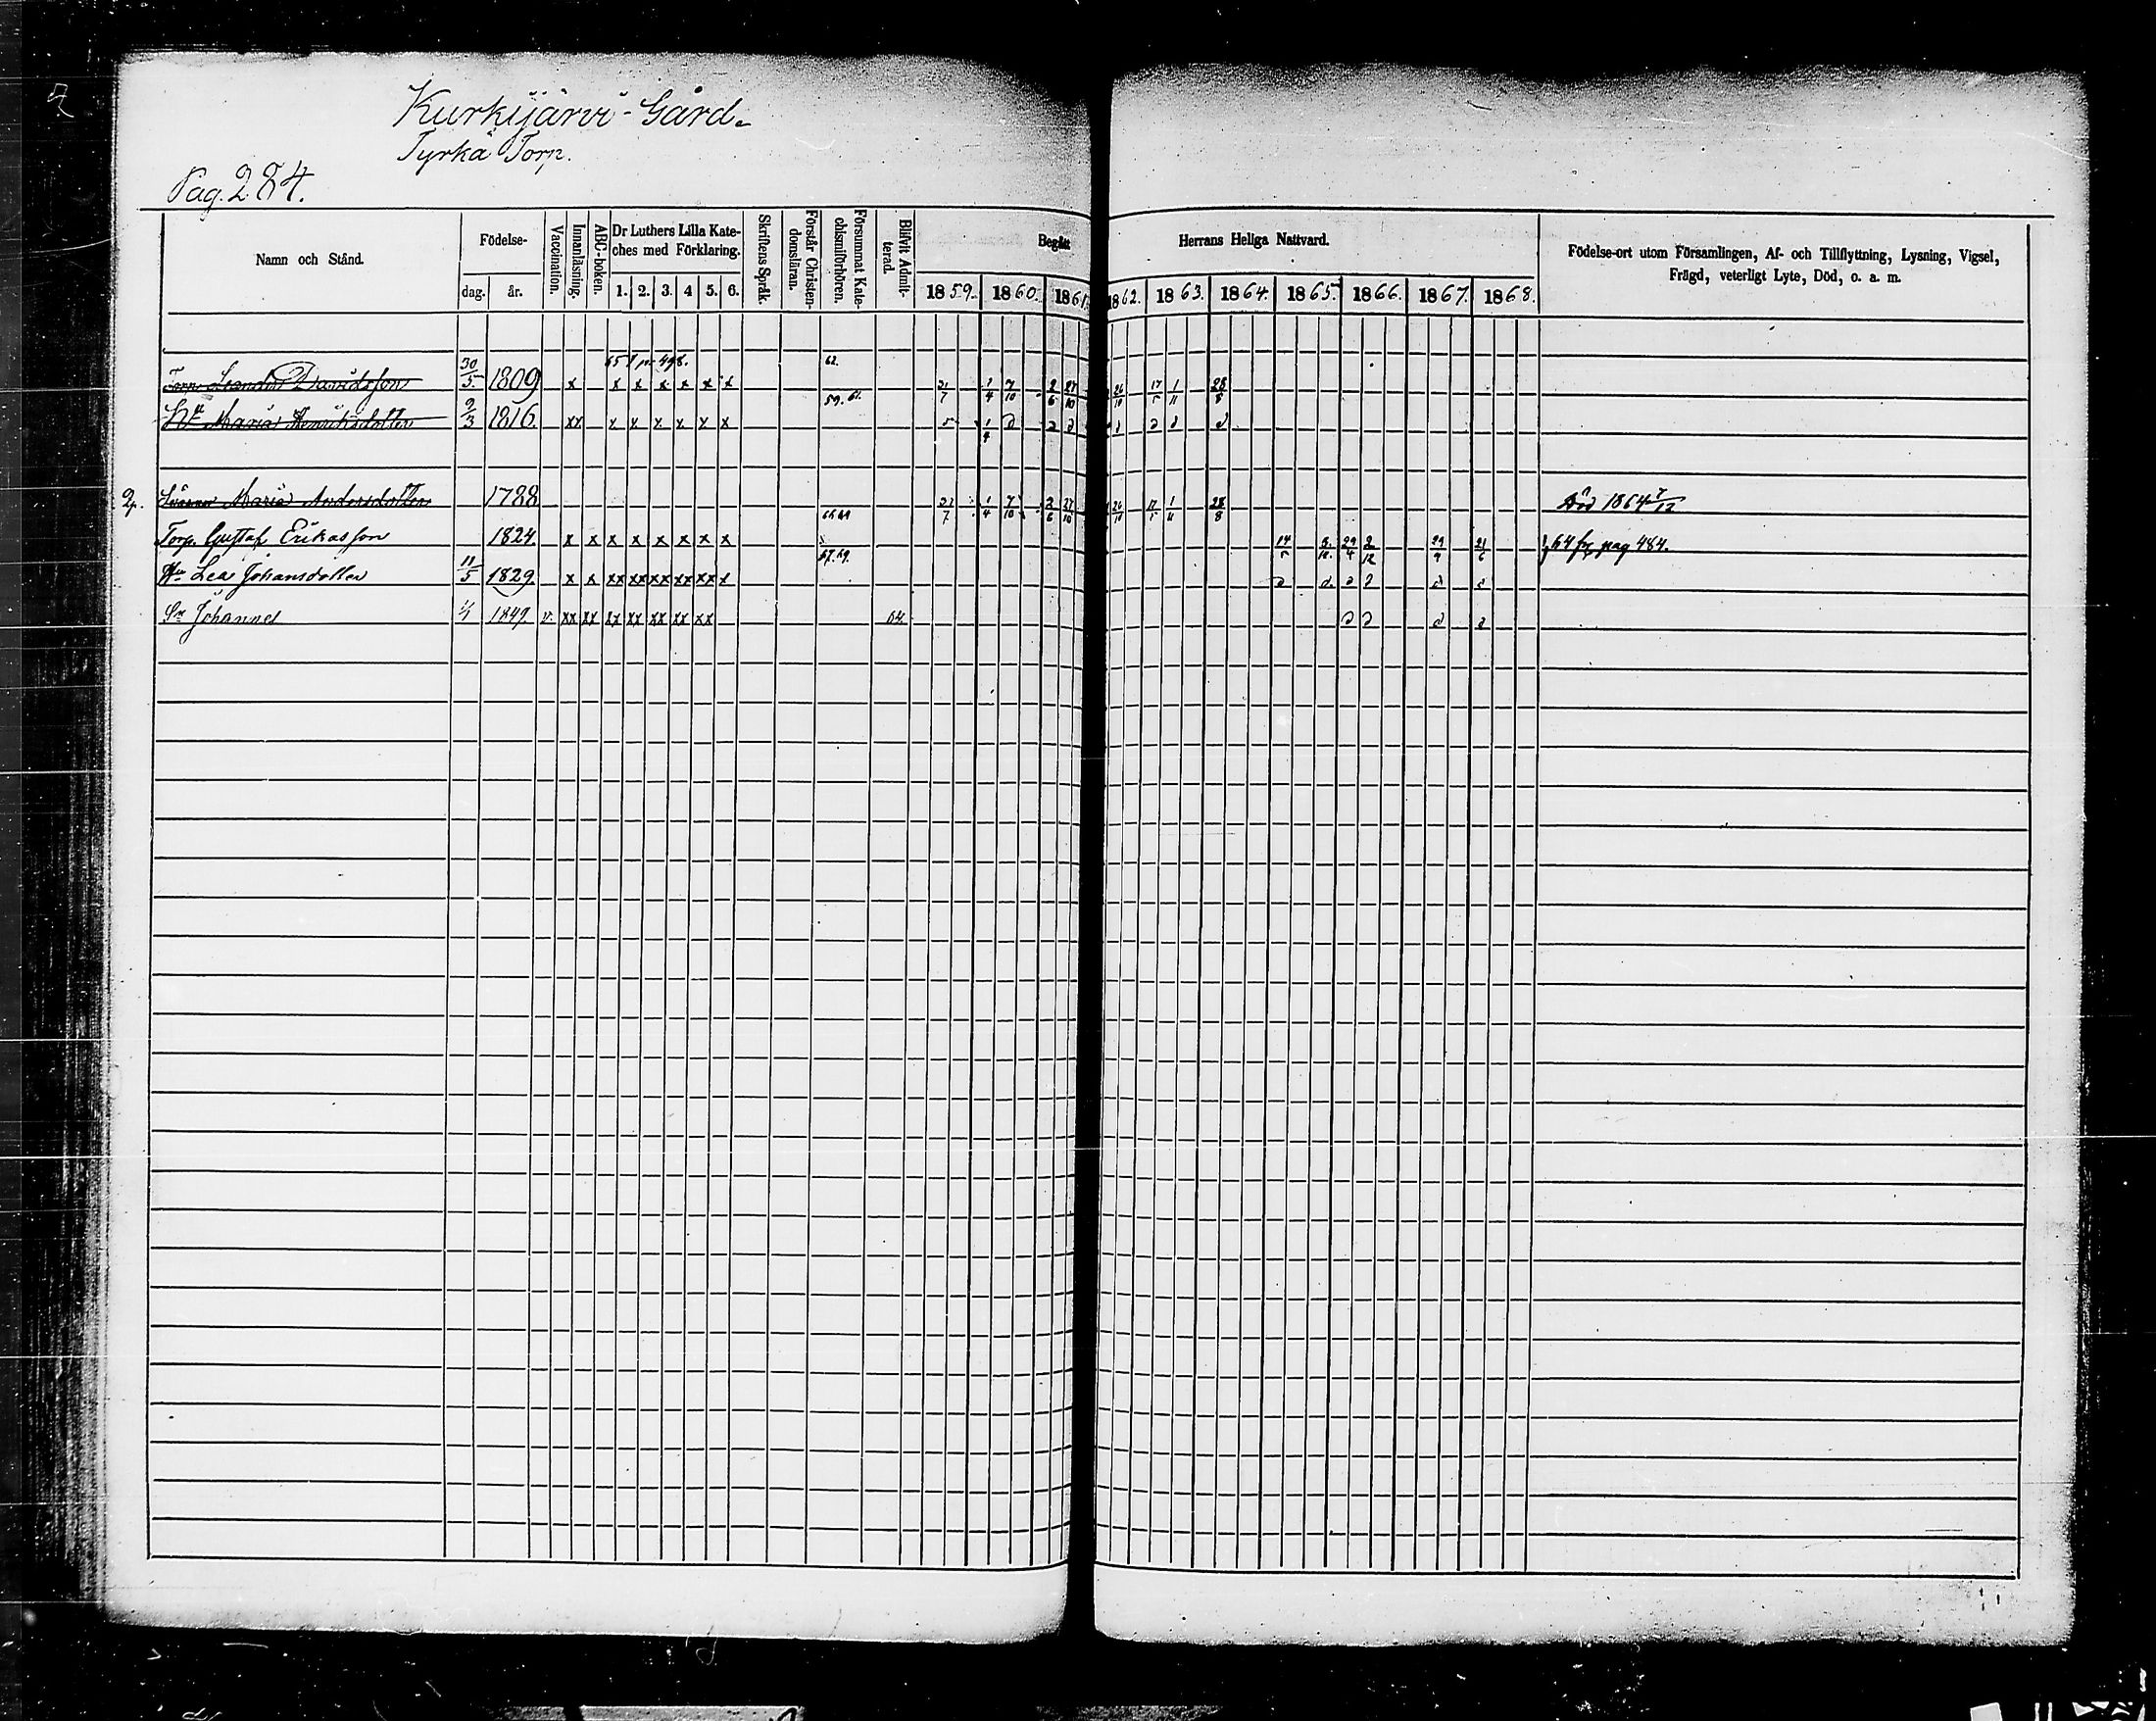 Kurkijärvi-Gård.
Tyrkä Torp.
Pag. 284.
Namn och Stånd.
Födelse-
dag. år.
Vaccination.
Innanläsning.
ABC-boken.
Dr Luthers Lilla Kate-
ches med Förklaring.
1. 2. 3. 4 5. 6.
Skriftens Språk.
Förstår Christen-
domsläran.
Försummat Kate-
chismiförhören.
Blifvit Admit-
terad.
Begått Herrans Heliga Nattvard.
1859. 1860. 1861. 1862. 1863. 1864. 1865. 1866. 1867. 1868.
Födelse-ort utom Församlingen, Af- och Tillflyttning, Lysning, Vigsel,
Frägd, veterligt Lyte, Död, o. a. m.
62.
Torp. Leander Davidsson 30/5 1809 x x x x x x x 31/7 1/4 7/10 2/6 27/10 26/10 17/5 1/11 28/8
59. 61.
Hu Maria Henriksdotter 9/3 1816. xx x x x x x x
2p. Maria Andersdotter 1788 31/7 1/4 7/10 2/6 27/10 26/10 17/5 1/11 28/8 Död 1864 7/12
Torp. Gustaf Eriksson 1824. x x x x x x x x 14/5 29/4 2/12 29/9 21/6 64 fr pag 484.
67. 69.
Hu Lea Johansdotter 11/5 1829 x x xx xx xx xx xx x
Sn Johannes 1849. v. xx xx xx xx xx xx xx 64